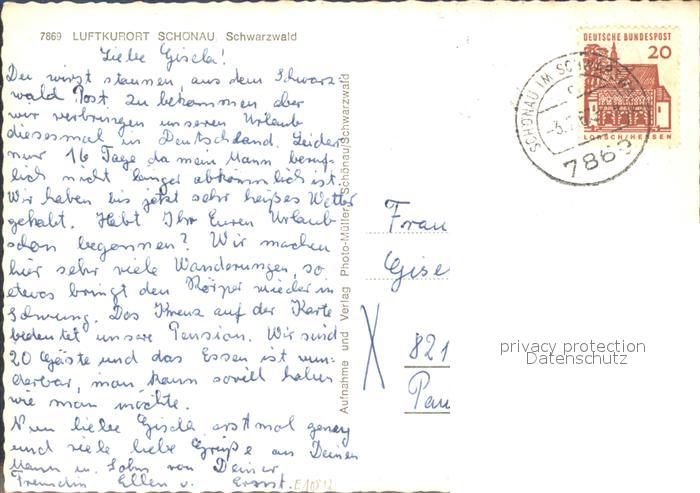 7869 LUFTKURORT SCHÖNAU, Schwarzwald
Liebe Gisela!
Du wirst staunen, aus dem Schwarz
wald Post zu bekommen aber
wir verbringen unseren Urlaub
diesesmal in Deutschland. Leider
nur 16 Tage da mein Mann beruf-
lich nicht länger abkömmlich ist.
Wir haben bis jetzt sehr heißes Wetter
gehabt. Habt Ihr Euren Urlaub
schon begonnen? Wir machen
hier sehr viele Wanderungen, so
etwas bringt den Körper wieder in
Schwung. Das Kreuz auf der Karte
bedeutet unsere Pension. Wir sind
20 Gäste und das Essen ist wun-
derbar, man kann soviel haben
wie man möchte.
Nun liebe Gisela erstmal genug
und viele liebe Grüße an Deinen
Mann u. Sohn von Deiner
Freundin Ellen u. Ernst.
E10812
Aufnahme und Verlag Photo-Müller, Schönau/Schwarzwald
DEUTSCHE BUNDESPOST
20
LORSCH/HESSEN
SCHÖNAU IM SCHWARZW
7869
Frau
Gise
821
privacy protection
Datenschutz